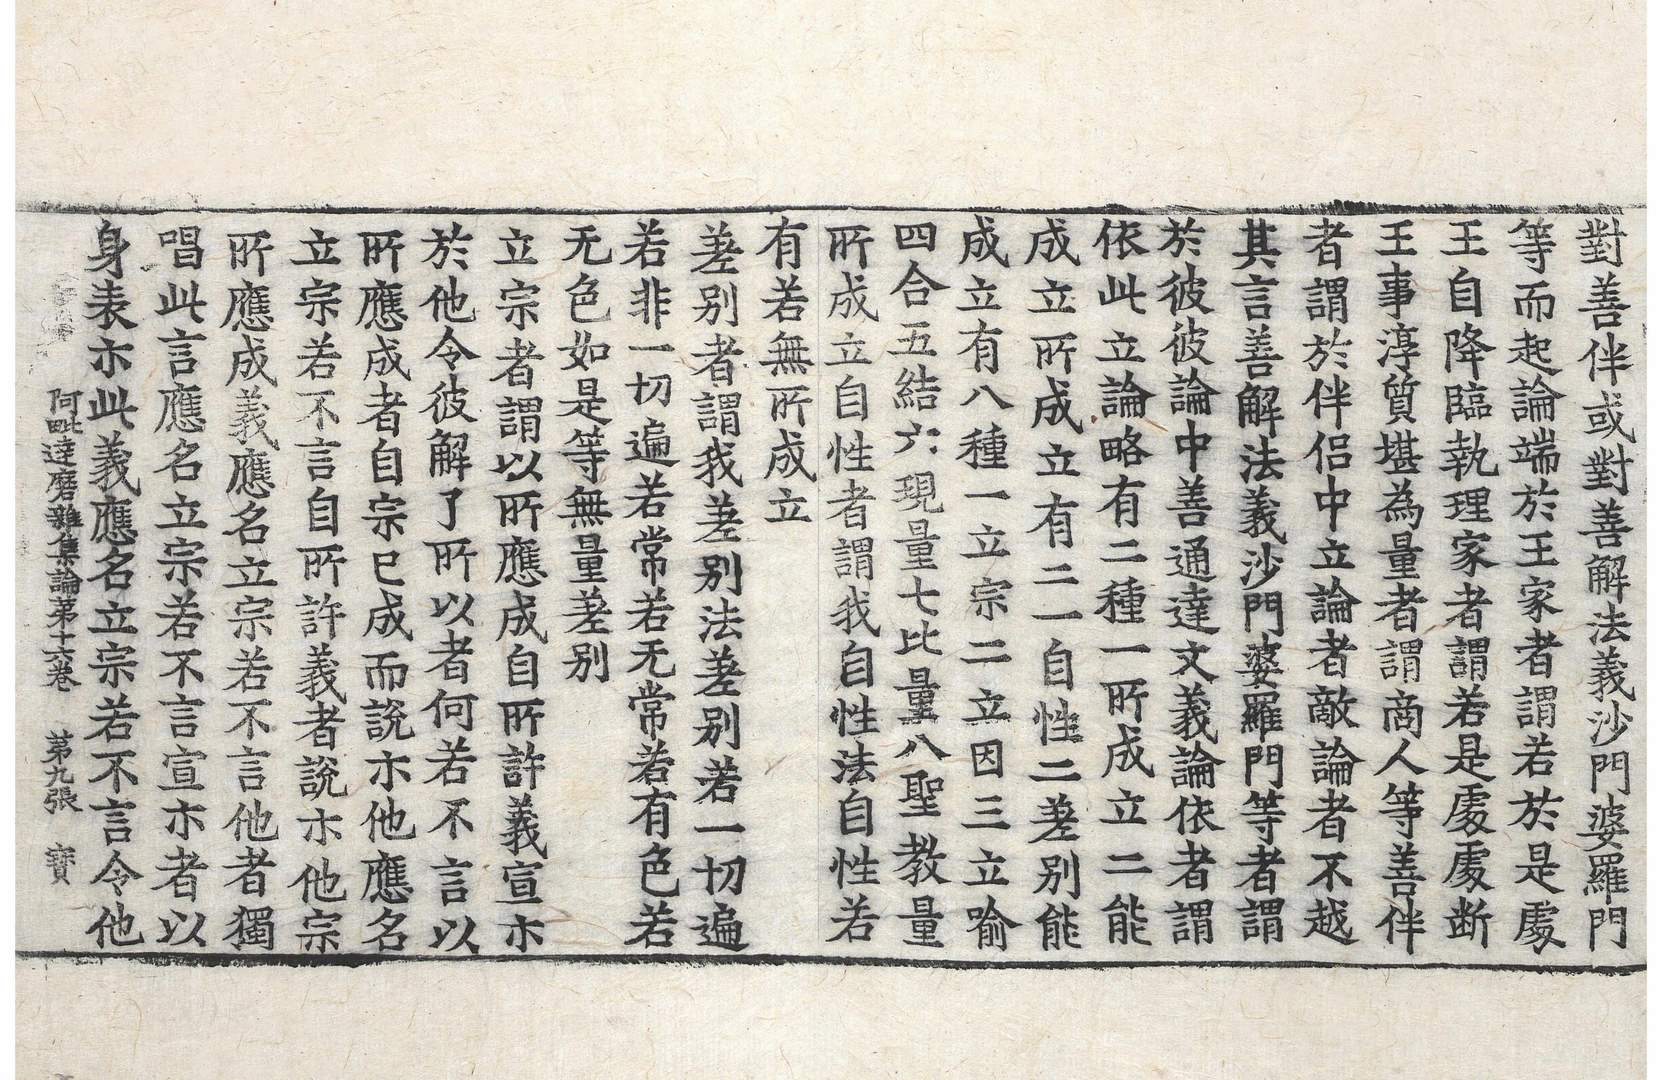 對善伴或對善解法義沙門婆羅門
等而起論端於王家者謂若於是處
王自降臨執理家者謂若是處處断
王事淳質堪為量者謂商人等善伴
者謂於伴侶中立論者敵論者不越
其言善解法義沙門婆羅門等者謂
於彼彼論中善通達文義論依者謂
依此立論略有二種一所成立二能
成立所成立有二一自性二差別能
成立有八種一立宗二立因三立喻
四合五結六現量七比量八聖教量
所成立自性者謂我自性法自性若
有若無所成立
差別者謂我差別法差別若一切遍
若非一切遍若常若无常若有色若
无色如是等無量差別
立宗者謂以所應成自所許義宣示
於他令彼解了所以者何若不言以
所應成者自宗已成而說示他應名
立宗若不言自所許義者說示他宗
所應成義應名立宗若不言他者獨
唱此言應名立宗若不言宣示者以
身表示此義應名立宗若不言令他
阿毗達磨雜集論第十六卷 第九張 寶